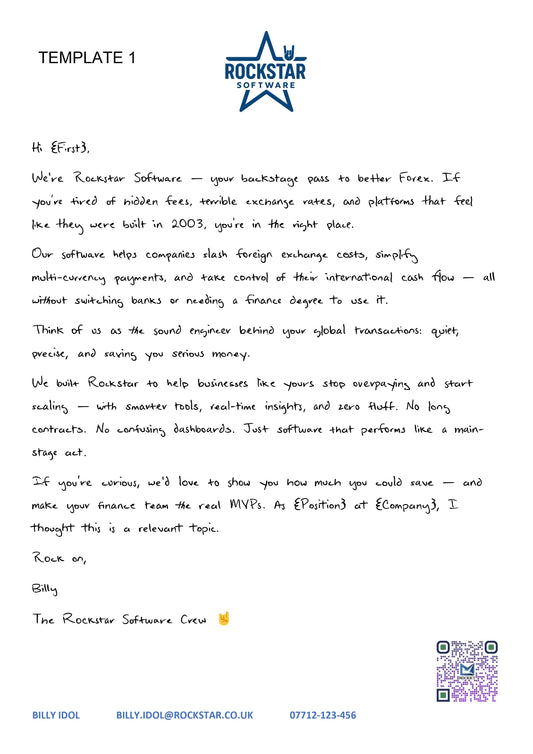 TEMPLATE 1
ROCKSTAR
SOFTWARE
Hi {First},
We're Rockstar Software — your backstage pass to better Forex. If
you're tired of hidden fees, terrible exchange rates, and platforms that feel
like they were built in 2003, you're in the right place.
Our software helps companies slash foreign exchange costs, simplify
multi-currency payments, and take control of their international cash flow — all
without switching banks or needing a finance degree to use it.
Think of us as the sound engineer behind your global transactions: quiet,
precise, and saving you serious money.
We built Rockstar to help businesses like yours stop overpaying and start
scaling — with smarter tools, real-time insights, and zero fluff. No long
contracts. No confusing dashboards. Just software that performs like a main-
stage act.
If you're curious, we'd love to show you how much you could save — and
make your finance team the real MVPs. As {Position} at {Company}, I
thought this is a relevant topic.
Rock on,
Billy
The Rockstar Software Crew 🤘
BILLY IDOL BILLY.IDOL@ROCKSTAR.CO.UK 07712-123-456